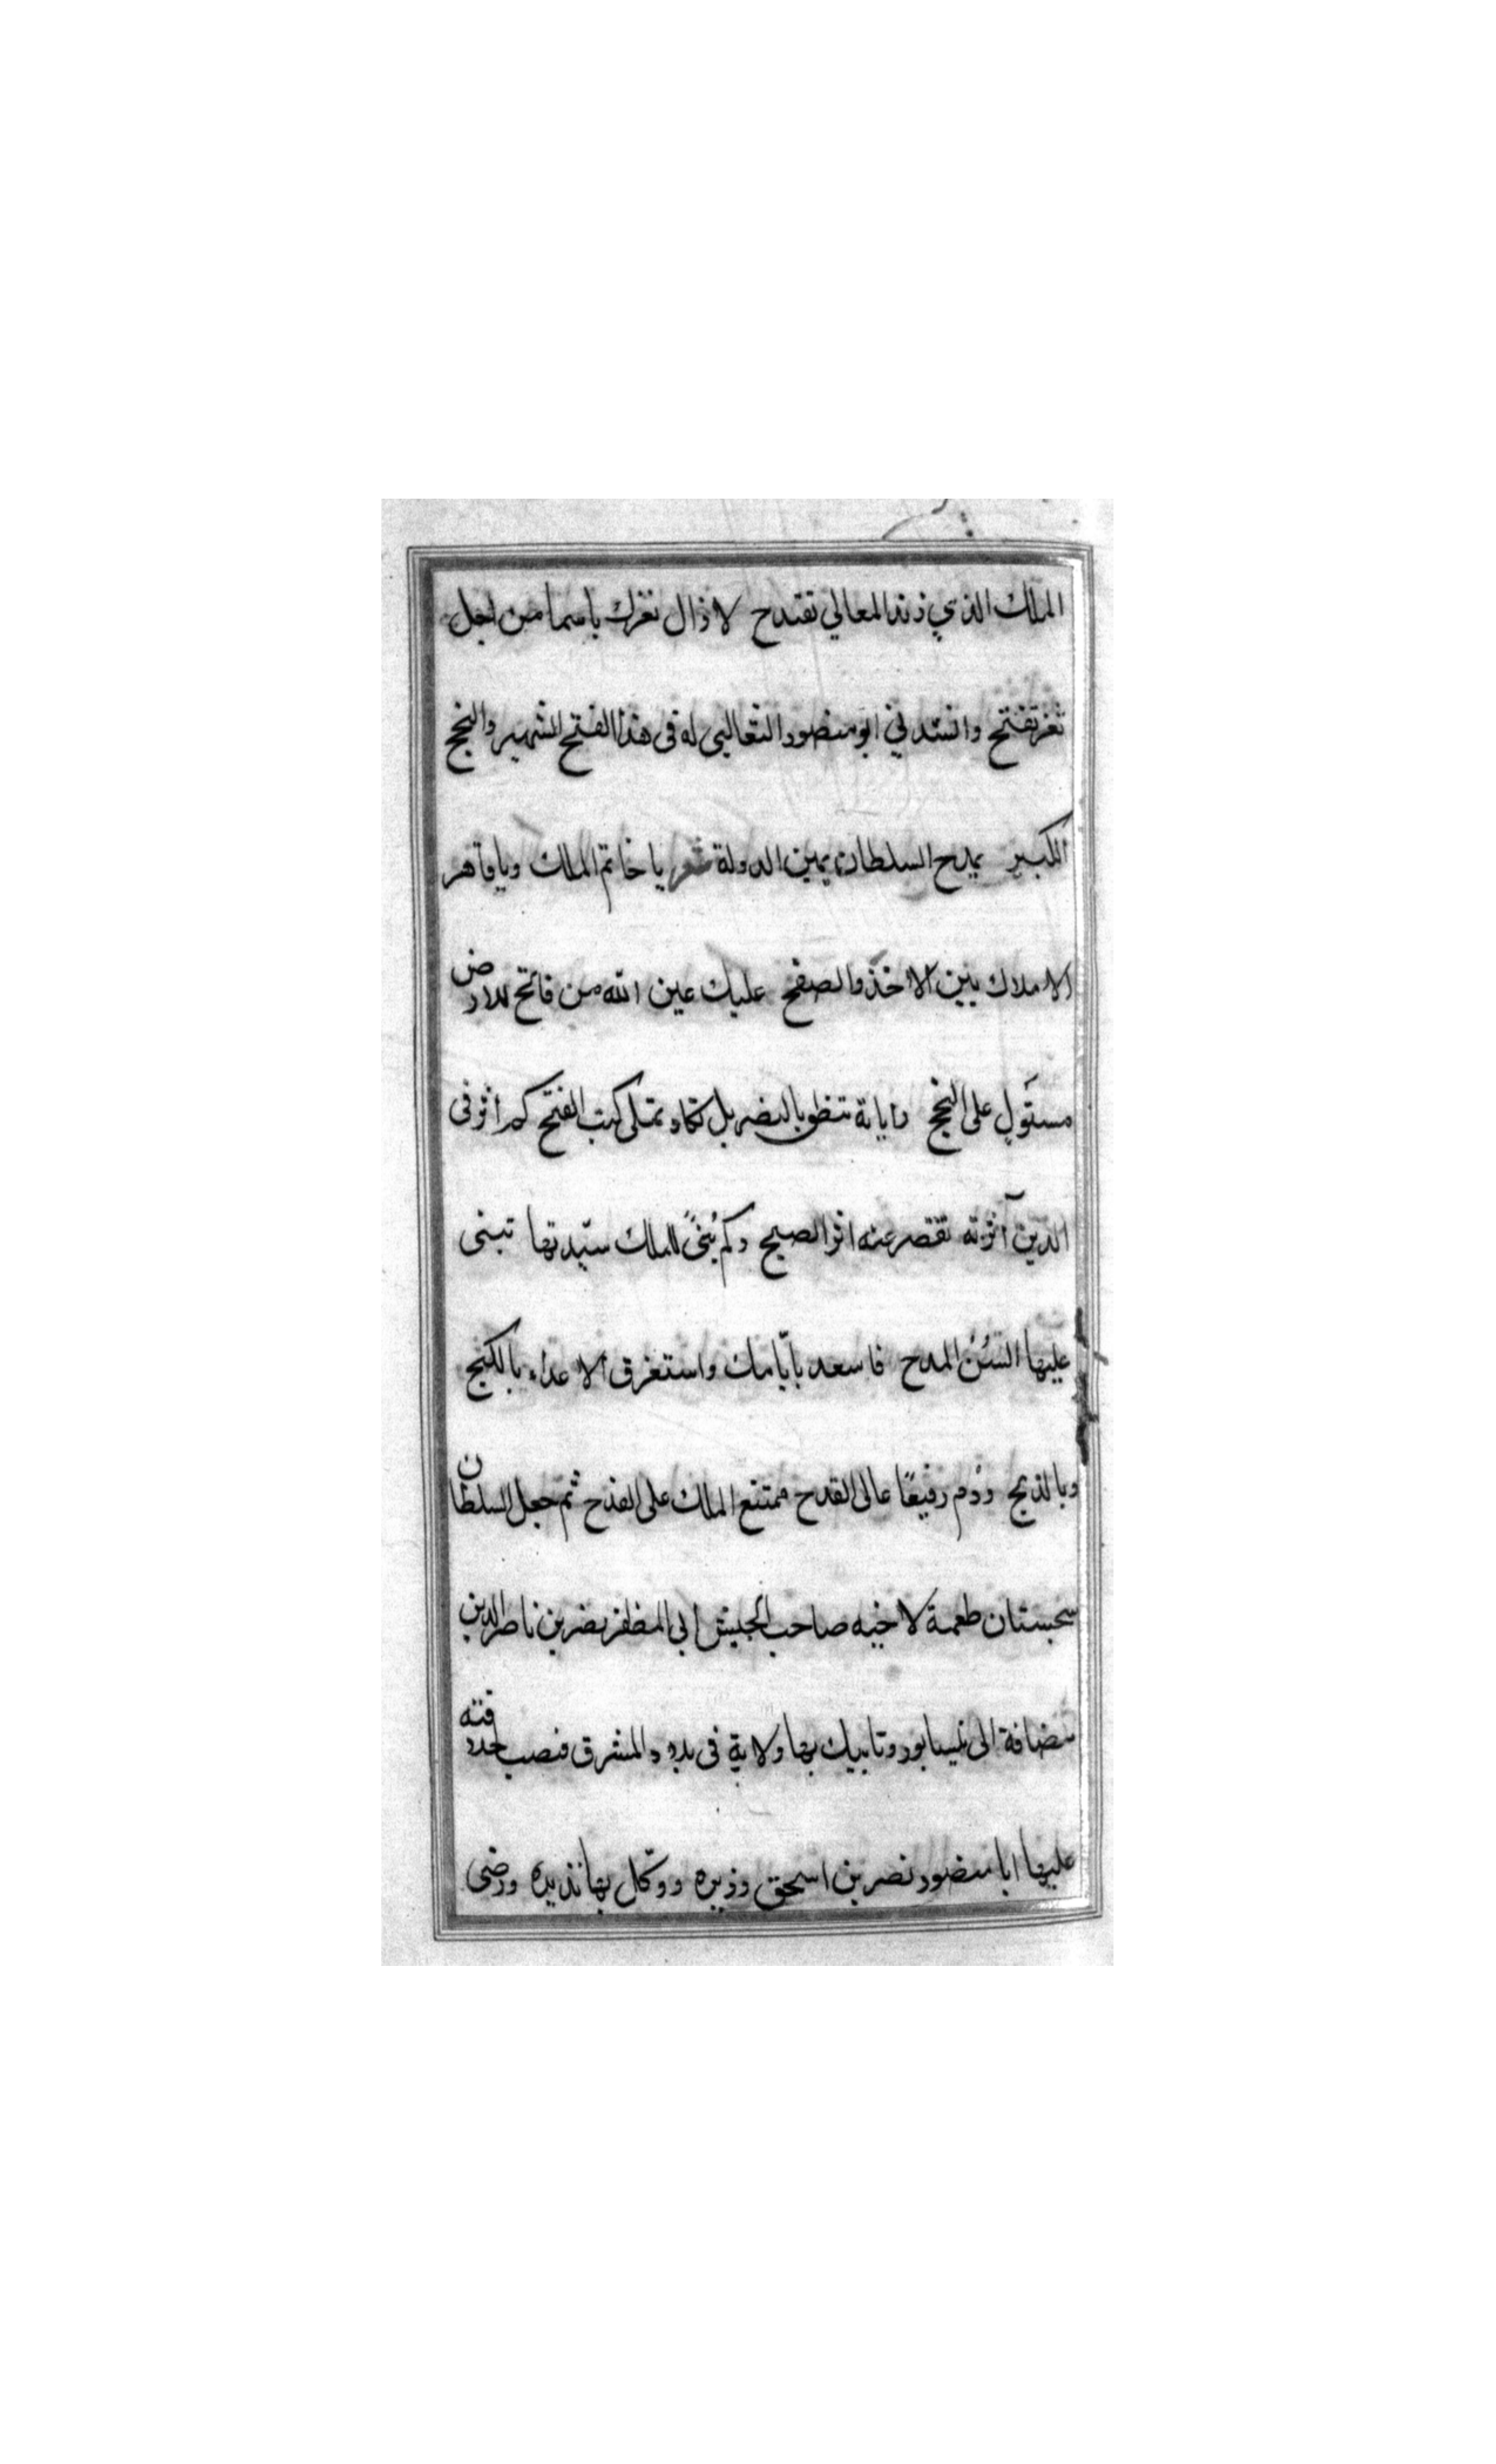 الملك الذي زند المعالي تقتدح لا زال ثغرك باسما من اجل
ثغر تفتح وانشدني ابو منصور الثعالبى له فى هذا الفتح الشهير والنجح
الكبير يمدح السلطان يمين الدولة شعر يا خاتم الملك ويا قاهر
الاملاك بين الاخذ والصفح عليك عين الله من فاتح للارض
مستول على النجح راياته تنطق بالنصر بل تكاد تملى كتب الفتح كم اثر فى
الدين آثرته تقصر عنه اثر الصبح وكم بنىً للملك شيّدتها تبنى
عليها السُن المدح فاسعد بايّامك واستغرق الاعداء بالكبح
وبالذبح ودُم رفيعًا عالى القدح ممتنع الملك على القدح ثم جعل السلطان
سجستان طعمة لاخيه صاحب الجيش ابى المظفر نصر بن ناصر الدين
مضافة الى نيسابور وناهيك بها ولاية فى بلاد المشرق فنصب
عليها ابا منصور نصر بن اسحق وزيره ووكّل بها تدبيره ورضى